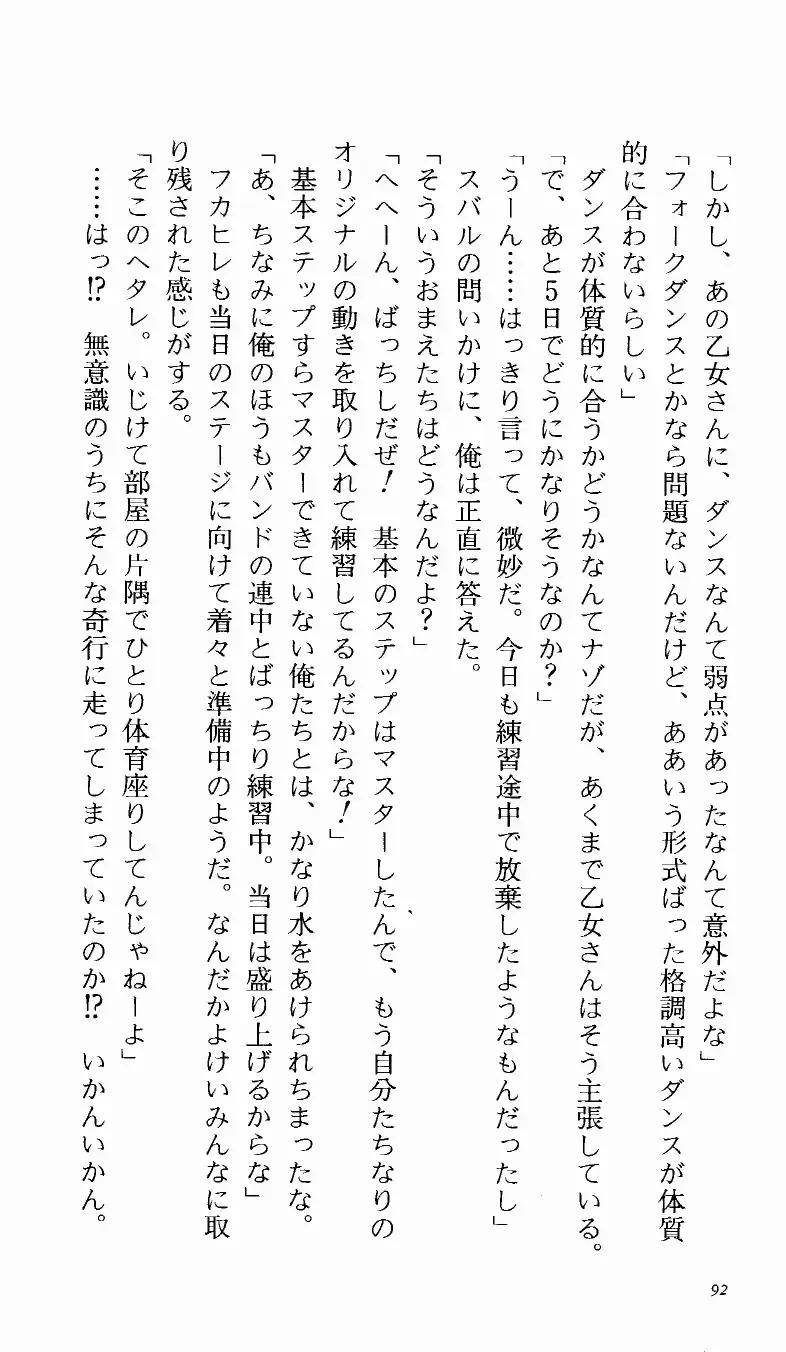 「しかし、あの乙女さんに、ダンスなんて弱点があったなんて意外だよな」
「フォークダンスとかなら問題ないんだけど、ああいう形式ばった格調高いダンスが体質
的に合わないらしい」
ダンスが体質的に合うかどうかなんてナゾだが、あくまで乙女さんはそう主張している。
「で、あと5日でどうにかなりそうなのか?」
「うーん……はっきり言って、微妙だ。今日も練習途中で放棄したようなもんだったし」
スバルの問いかけに、俺は正直に答えた。
「そういうおまえたちはどうなんだよ?」
「へへーん、ばっちしだぜ! 基本のステップはマスターしたんで、もう自分たちなりの
オリジナルの動きを取り入れて練習してるんだからな!」
基本ステップすらマスターできていない俺たちとは、かなり水をあけられちまったな。
「あ、ちなみに俺のほうもバンドの連中とばっちり練習中。当日は盛り上げるからな」
フカヒレも当日のステージに向けて着々と準備中のようだ。なんだかよけいみんなに取
り残された感じがする。
「そこのヘタレ。いじけて部屋の片隅でひとり体育座りしてんじゃねーよ」
……はっ!? 無意識のうちにそんな奇行に走ってしまっていたのか!? いかんいかん。
92